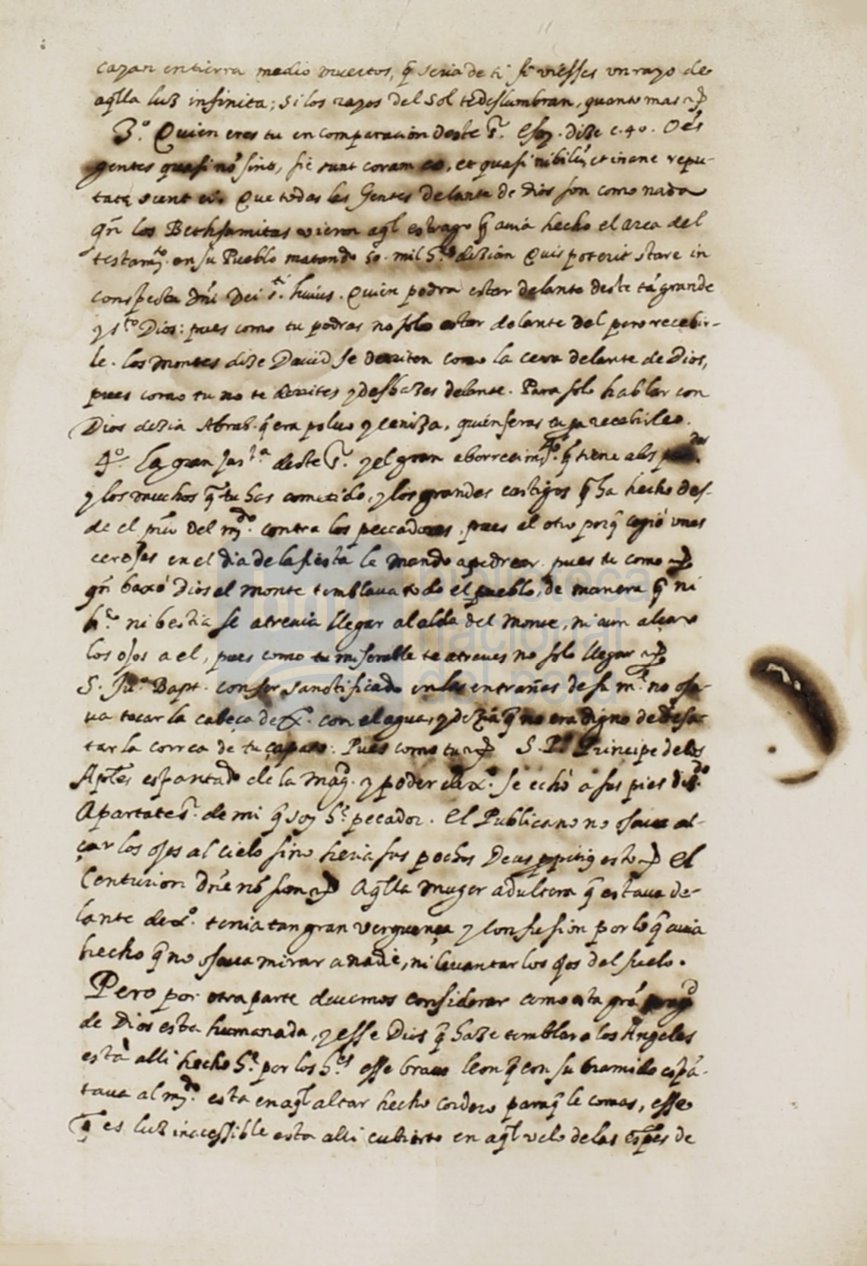 cayan en tierra medio muertos, q̃ seria de ti si viesses un rayo de
aq̃lla luz infinita; si los rayos del sol te deslumbran, quanto mas
3.º Quien eres tu en comparacion deste S.r Esay. dize c. 40. Oẽs
gentes quasi nõ sint, sic sunt coram eo, et quasi nihilũ, et inane repu-
tatę sunt ei. Que todas las Gentes delante de Dios son como nada
qñ los Bethsamitas vieron aq̃l estrago q̃ avia hecho el arca del
testam.to en su Pueblo matando 50. mil h.es dezian Quis poterit stare in
conspectu Dñi Dei s.ti huius. Quien podra estar delante deste tã grande
y s.to Dios: pues como tu podras no solo estar delante del pero recebir-
le. los montes dize David se derriten como la cera delante de Dios,
pues como tu no te derrites y deshazes delante. Para solo hablar con
Dios dezia Abrah. q̃ era polvo y ceniza, quien seras tu pa recebirle.
4.º La gran Jus.ta deste S.r y el gran aborrecim.to q̃ tiene a los
y los muchos q̃ tu has cometido, y los grandes castigos q̃ ha hecho des-
de el prin̄ del m.do contra los peccadores. pues el otro porq̃ cogió unas
cerojas en el dia de la fiesta le mando apedrear. pues tu como
qñ baxó Dios al monte temblava todo el pueblo, de manera q̃ ni
h.e ni bestia se atrevia llegar al alda del monte, ni aun alçar
los ojos a el, pues como tu miserable te atreves no solo llegar
S. Ju.º Bapt. con ser sanctificado en las entrañas de su m.e no osa-
va tocar la cabeça de X.º con el agua, y dezia q̃ no era digno de desa-
tar la correa de su çapato. Pues como tu S. P.º Principe de los
Aptles espantado de la mag.d y poder de X.º se echó a sus pies diz.do
Apartate S.r de mi q̃ soy h.e pecador. El Publicano no osava al-
çar los ojos al cielo sino heria sus pechos Deus ppitiꝰ esto El
Centurion Dñe nõ sum Aq̃lla muger adultera q̃ estava de-
lante de X.º tenia tan gran verguença y confusion por lo q̃ avia
hecho q̃ no osava mirar a nadie, ni levantar los ojos del suelo.
Pero por otra parte devemos considerar como esta grã
de Dios esta humanada, y esse Dios q̃ haze temblar a los Angeles
està alli hecho h.e por los h.es esse bravo leon q̃ con su bramido espã-
tava al m.do esta en aq̃l altar hecho cordero paraq̃ le comas, esse
q̃ es luz inaccessible esta alli cubierto en aq̃l velo de las espẽs de